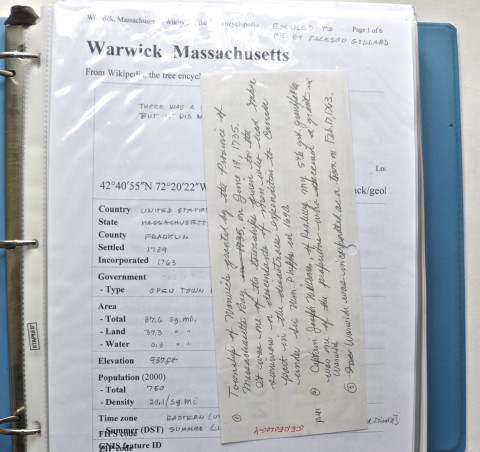 Warwick, Massachusetts
Wikipedia
encyclopedia
EMAILED TO
ME BY JACKSON GODDARD
Page 1 of 6
Warwick Massachusetts
From Wikipedia, the
THERE WAS A
BUT DID
42°40′55″N 72°20′22″W
Country UNITED STATES
State MASSACHUSETTS
County FRANKLIN
Settled 1739
Incorporated 1763
Government
- Type OPEN TOWN
Area
- Total 37.6 sq.mi.
- Land 37.3 " "
- Water 0.3 " "
Elevation 937 ft
Population (2000)
- Total 750
- Density 20.1/sq mi
Time zone EASTERN
- Summer (DST) SUMMER
FIPS code
GNIS feature ID
① Township of Warwick granted by the Province of
Massachusetts Bay in 1735, on June 19, 1735.
It was one of the townships given to the
survivors or descendants of them who had taken
part in the disastrous expedition to Canada
under Sir Wm. Phipps in 1690.
P41 ② Captain Joseph Williams of Roxbury my 5th gx grandfather
was one of the petitioners who received a grant in
Warwick
③ Warwick was incorporated as a town on Feb. 17, 1763.
GENEOLOGY
STAPLES